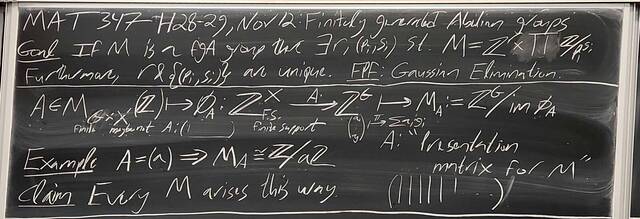 MAT 347 H28-29, Nov 12: Finitely generated Abelian groups
Goal If M is a fgA group then ∃ r, (pᵢ, sᵢ) st. M = ℤʳ × ∏ ℤ/pᵢ^sᵢ
Furthermore, r & {(pᵢ, sᵢ)} are unique. FPF: Gaussian Elimination.
A ∈ M_{G×X}(ℤ) ↦ φ_A: ℤ^X → A· ℤ^G ↦ M_A := ℤ^G/im φ_A
finite maybe not A: ( ) F.S. finite support ↦ Σ aᵢgᵢ
A: "Presentation
Example A = (a) ⇒ M_A ≅ ℤ/aℤ matrix for M"
Claim Every M arises this way. (|||||| )